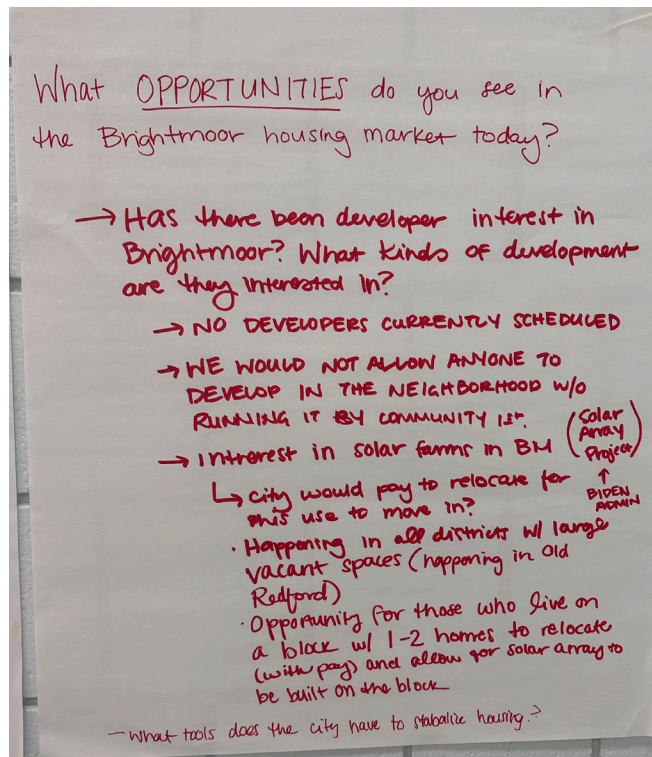 What OPPORTUNITIES do you see in
the Brightmoor housing market today?
→ Has there been developer interest in
Brightmoor? What kinds of development
are they interested in?
→ NO DEVELOPERS CURRENTLY SCHEDULED
→ WE WOULD NOT ALLOW ANYONE TO
DEVELOP IN THE NEIGHBORHOOD W/O
RUNNING IT BY COMMUNITY 1st.
→ Interest in solar farms in BM (Solar
Array
Project)
↑
BIDEN
ADMIN
↳ city would pay to relocate for
this use to move in?
· Happening in all districts w/ large
vacant spaces (happening in Old
Redford)
· Opportunity for those who live on
a block w/ 1-2 homes to relocate
(with pay) and allow for solar array to
be built on the block
- What tools does the city have to stabalize housing?